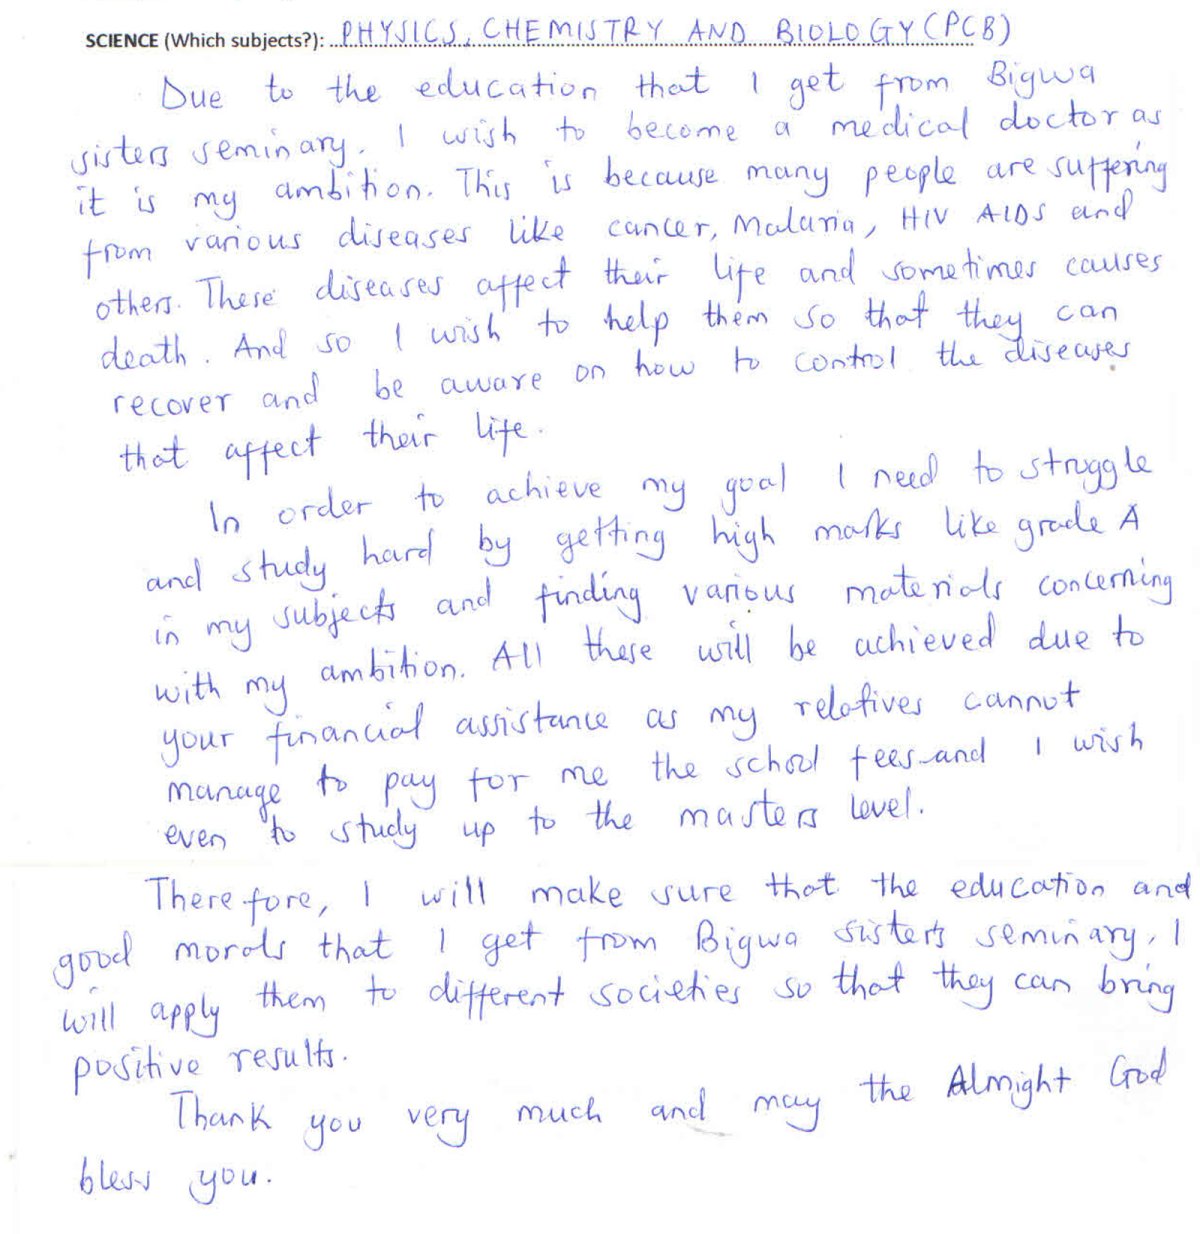 SCIENCE (Which subjects?): PHYSICS, CHEMISTRY AND BIOLOGY (PCB)
Due to the education that I get from Bigwa
sisters seminary. I wish to become a medical doctor as
it is my ambition. This is because many people are suffering
from various diseases like cancer, Malaria, HIV AIDS and
others. These diseases affect their life and sometimes causes
death. And so I wish to help them so that they can
recover and be aware on how to control the diseases
that affect their life.
In order to achieve my goal I need to struggle
and study hard by getting high marks like grade A
in my subjects and finding various materials concerning
with my ambition. All these will be achieved due to
your financial assistance as my relatives cannot
manage to pay for me the school fees and I wish
even to study up to the masters level.
Therefore, I will make sure that the education and
good morals that I get from Bigwa sisters seminary, I
will apply them to different societies so that they can bring
positive results.
Thank you very much and may the Almight God
bless you.